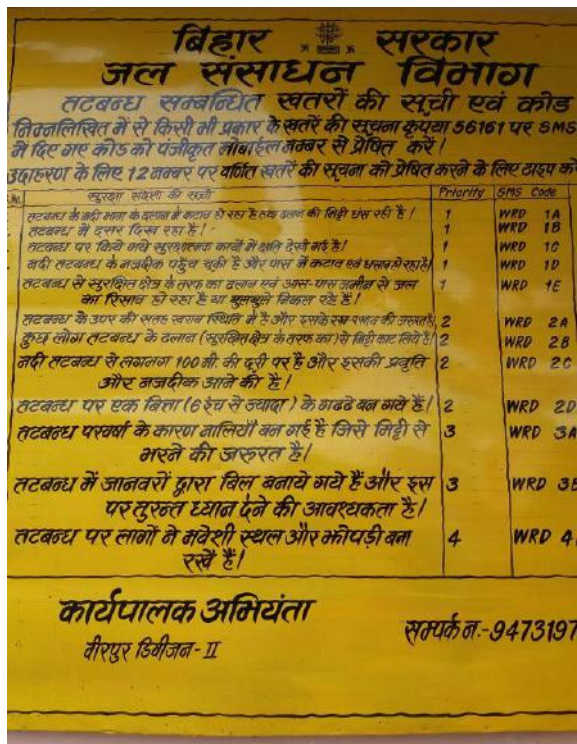 बिहार सरकार
जल संसाधन विभाग
तटबन्ध सम्बन्धित खतरों की सूची एवं कोड
निम्नलिखित में से किसी भी प्रकार के खतरें की सूचना कृपया 56161 पर SMS
में दिए गए कोड को पंजीकृत मोबाईल नम्बर से प्रेषित करें।
उदाहरण के लिए 12 नम्बर पर वर्णित खतरें की सूचना को प्रेषित करने के लिए टाइप करें
No. सुरक्षा संदेशों की सूची Priority SMS Code
तटबन्ध के नदी भाग के ढलान में कटाव हो रहा है तथा ढलान की मिट्टी धंस रही है। 1 WRD 1A
तटबन्ध में दरार दिख रहा है। 1 WRD 1B
तटबन्ध पर किये गये सुरक्षात्मक कार्यो में क्षति देखी गई है। 1 WRD 1C
नदी तटबन्ध के नजदीक पहुँच चुकी है और पास में कटाव एवं धसान हो रहा है। 1 WRD 1D
तटबन्ध से सुरक्षित क्षेत्र के तरफ का ढलान एवं आस-पास जमीन से जल 1 WRD 1E
का रिसाव हो रहा है या बुलबुले निकल रहे हैं।
तटबन्ध के उपर की सतह खराब स्थिति में है और इसके रख रखाव की जरूरत है। 2 WRD 2A
कुछ लोग तटबन्ध के ढलान (सुरक्षित क्षेत्र के तरफ का) से मिट्टी काट लिये है। 2 WRD 2B
नदी तटबन्ध से लगभग 100 मी. की दूरी पर है और इसकी प्रवृति 2 WRD 2C
और नजदीक आने की है।
तटबन्ध पर एक बित्ता (6 इंच से ज्यादा) के गढढे बन गये हैं। 2 WRD 2D
तटबन्ध पर वर्षा के कारण नालियाँ बन गई है जिसे मिट्टी से 3 WRD 3A
भरने की जरूरत है।
तटबन्ध में जानवरों द्वारा बिल बनाये गये हैं और इस 3 WRD 3B
पर तुरन्त ध्यान देने की आवश्यकता है।
तटबन्ध पर लोगों ने मवेशी स्थल और झोपड़ी बना 4 WRD 4
रखें हैं।
कार्यपालक अभियंता
वीरपुर डिवीजन-II
सम्पर्क न.-9473197